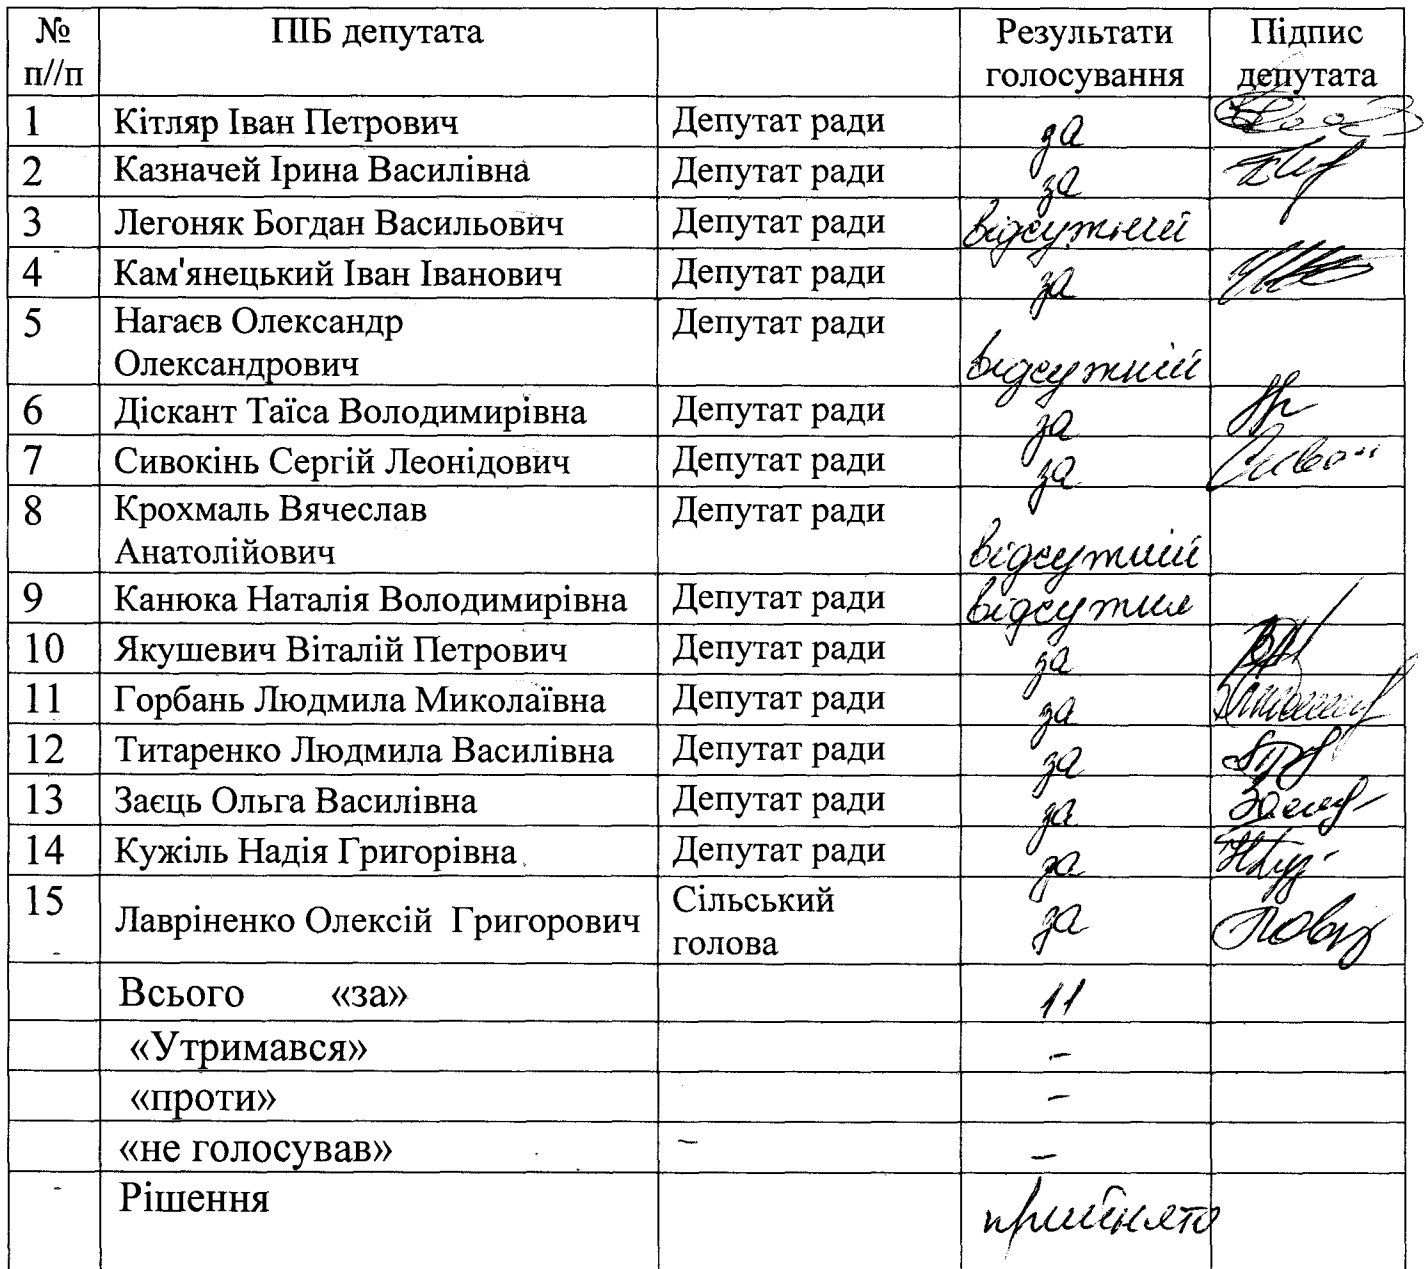 № ПІБ депутата Результати Підпис
п//п голосування депутата
1 Кітляр Іван Петрович Депутат ради за
2 Казначей Ірина Василівна Депутат ради за
3 Легоняк Богдан Васильович Депутат ради відсутній
4 Кам'янецький Іван Іванович Депутат ради за
5 Нагаєв Олександр Депутат ради
Олександрович відсутній
6 Діскант Таїса Володимирівна Депутат ради за
7 Сивокінь Сергій Леонідович Депутат ради за
8 Крохмаль Вячеслав Депутат ради
Анатолійович відсутній
9 Канюка Наталія Володимирівна Депутат ради відсутня
10 Якушевич Віталій Петрович Депутат ради за
11 Горбань Людмила Миколаївна Депутат ради за
12 Титаренко Людмила Василівна Депутат ради за
13 Заєць Ольга Василівна Депутат ради за
14 Кужіль Надія Григорівна Депутат ради за
15 Сільський
Лавріненко Олексій Григорович голова за
Всього «за» 11
«Утримався» –
«проти» –
«не голосував» – –
Рішення прийнято